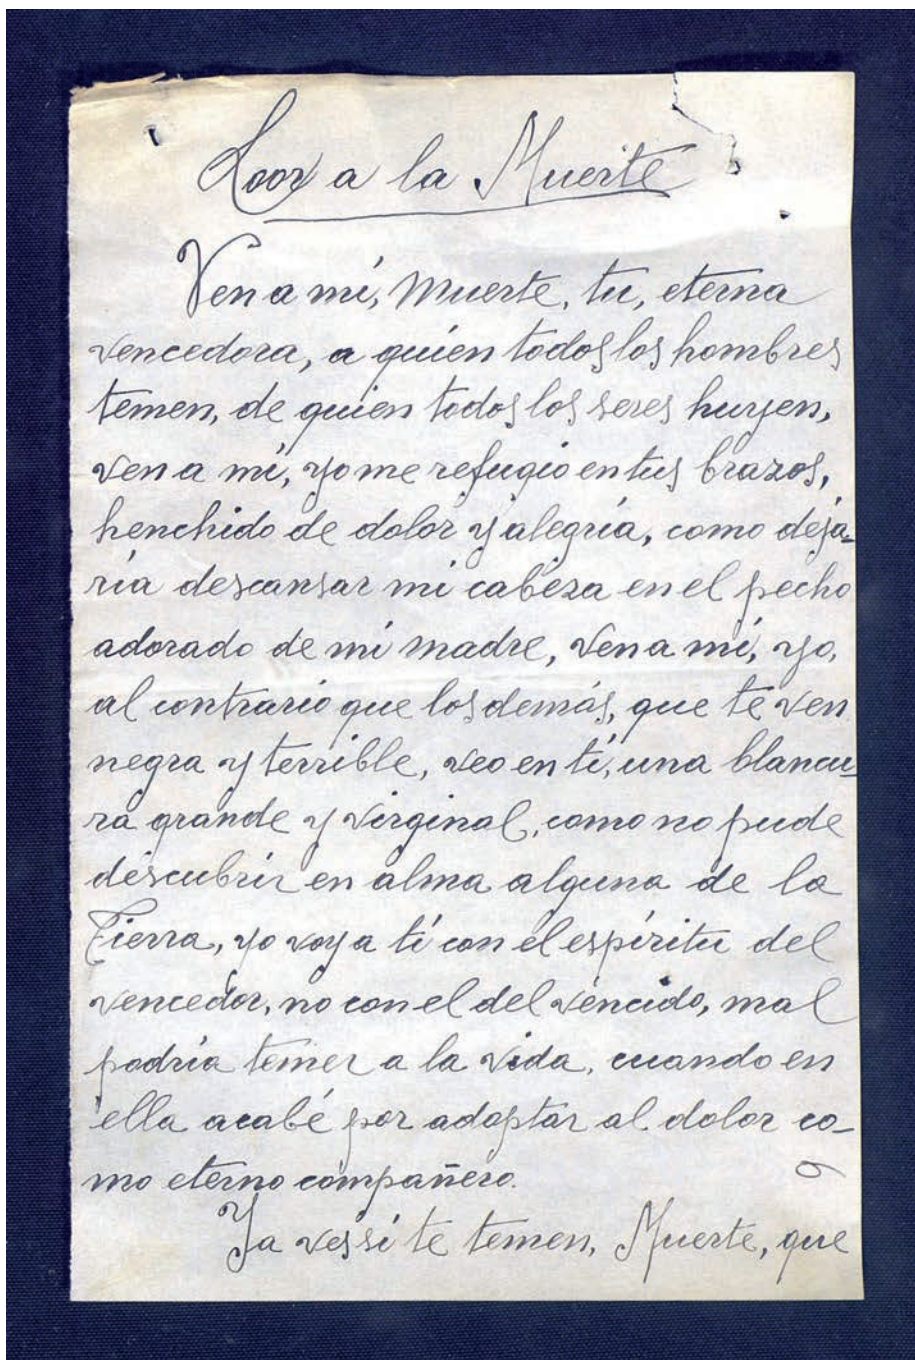 Loor a la Muerte
Ven a mí, Muerte, tu, eterna
vencedora, a quien todos los hombres
temen, de quien todos los seres huyen,
ven a mí, yo me refugio en tus brazos,
henchido de dolor y alegría, como deja-
ría descansar mi cabeza en el pecho
adorado de mi madre, Ven a mí, yo,
al contrario que los demás, que te ven
negra y terrible, veo en tí, una blancu-
ra grande y virginal, como no pude
descubrir en alma alguna de la
Tierra, yo voy a tí con el espíritu del
vencedor, no con el del vencido, mal
podría temer a la vida, cuando en
ella acabé por adoptar al dolor co-
mo eterno compañero.
Ya ves si te temen, Muerte, que